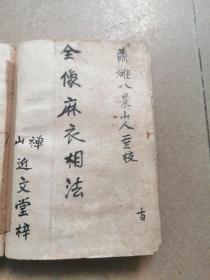 萧滩八景山人重校
全像麻衣相法
禅山近文堂梓